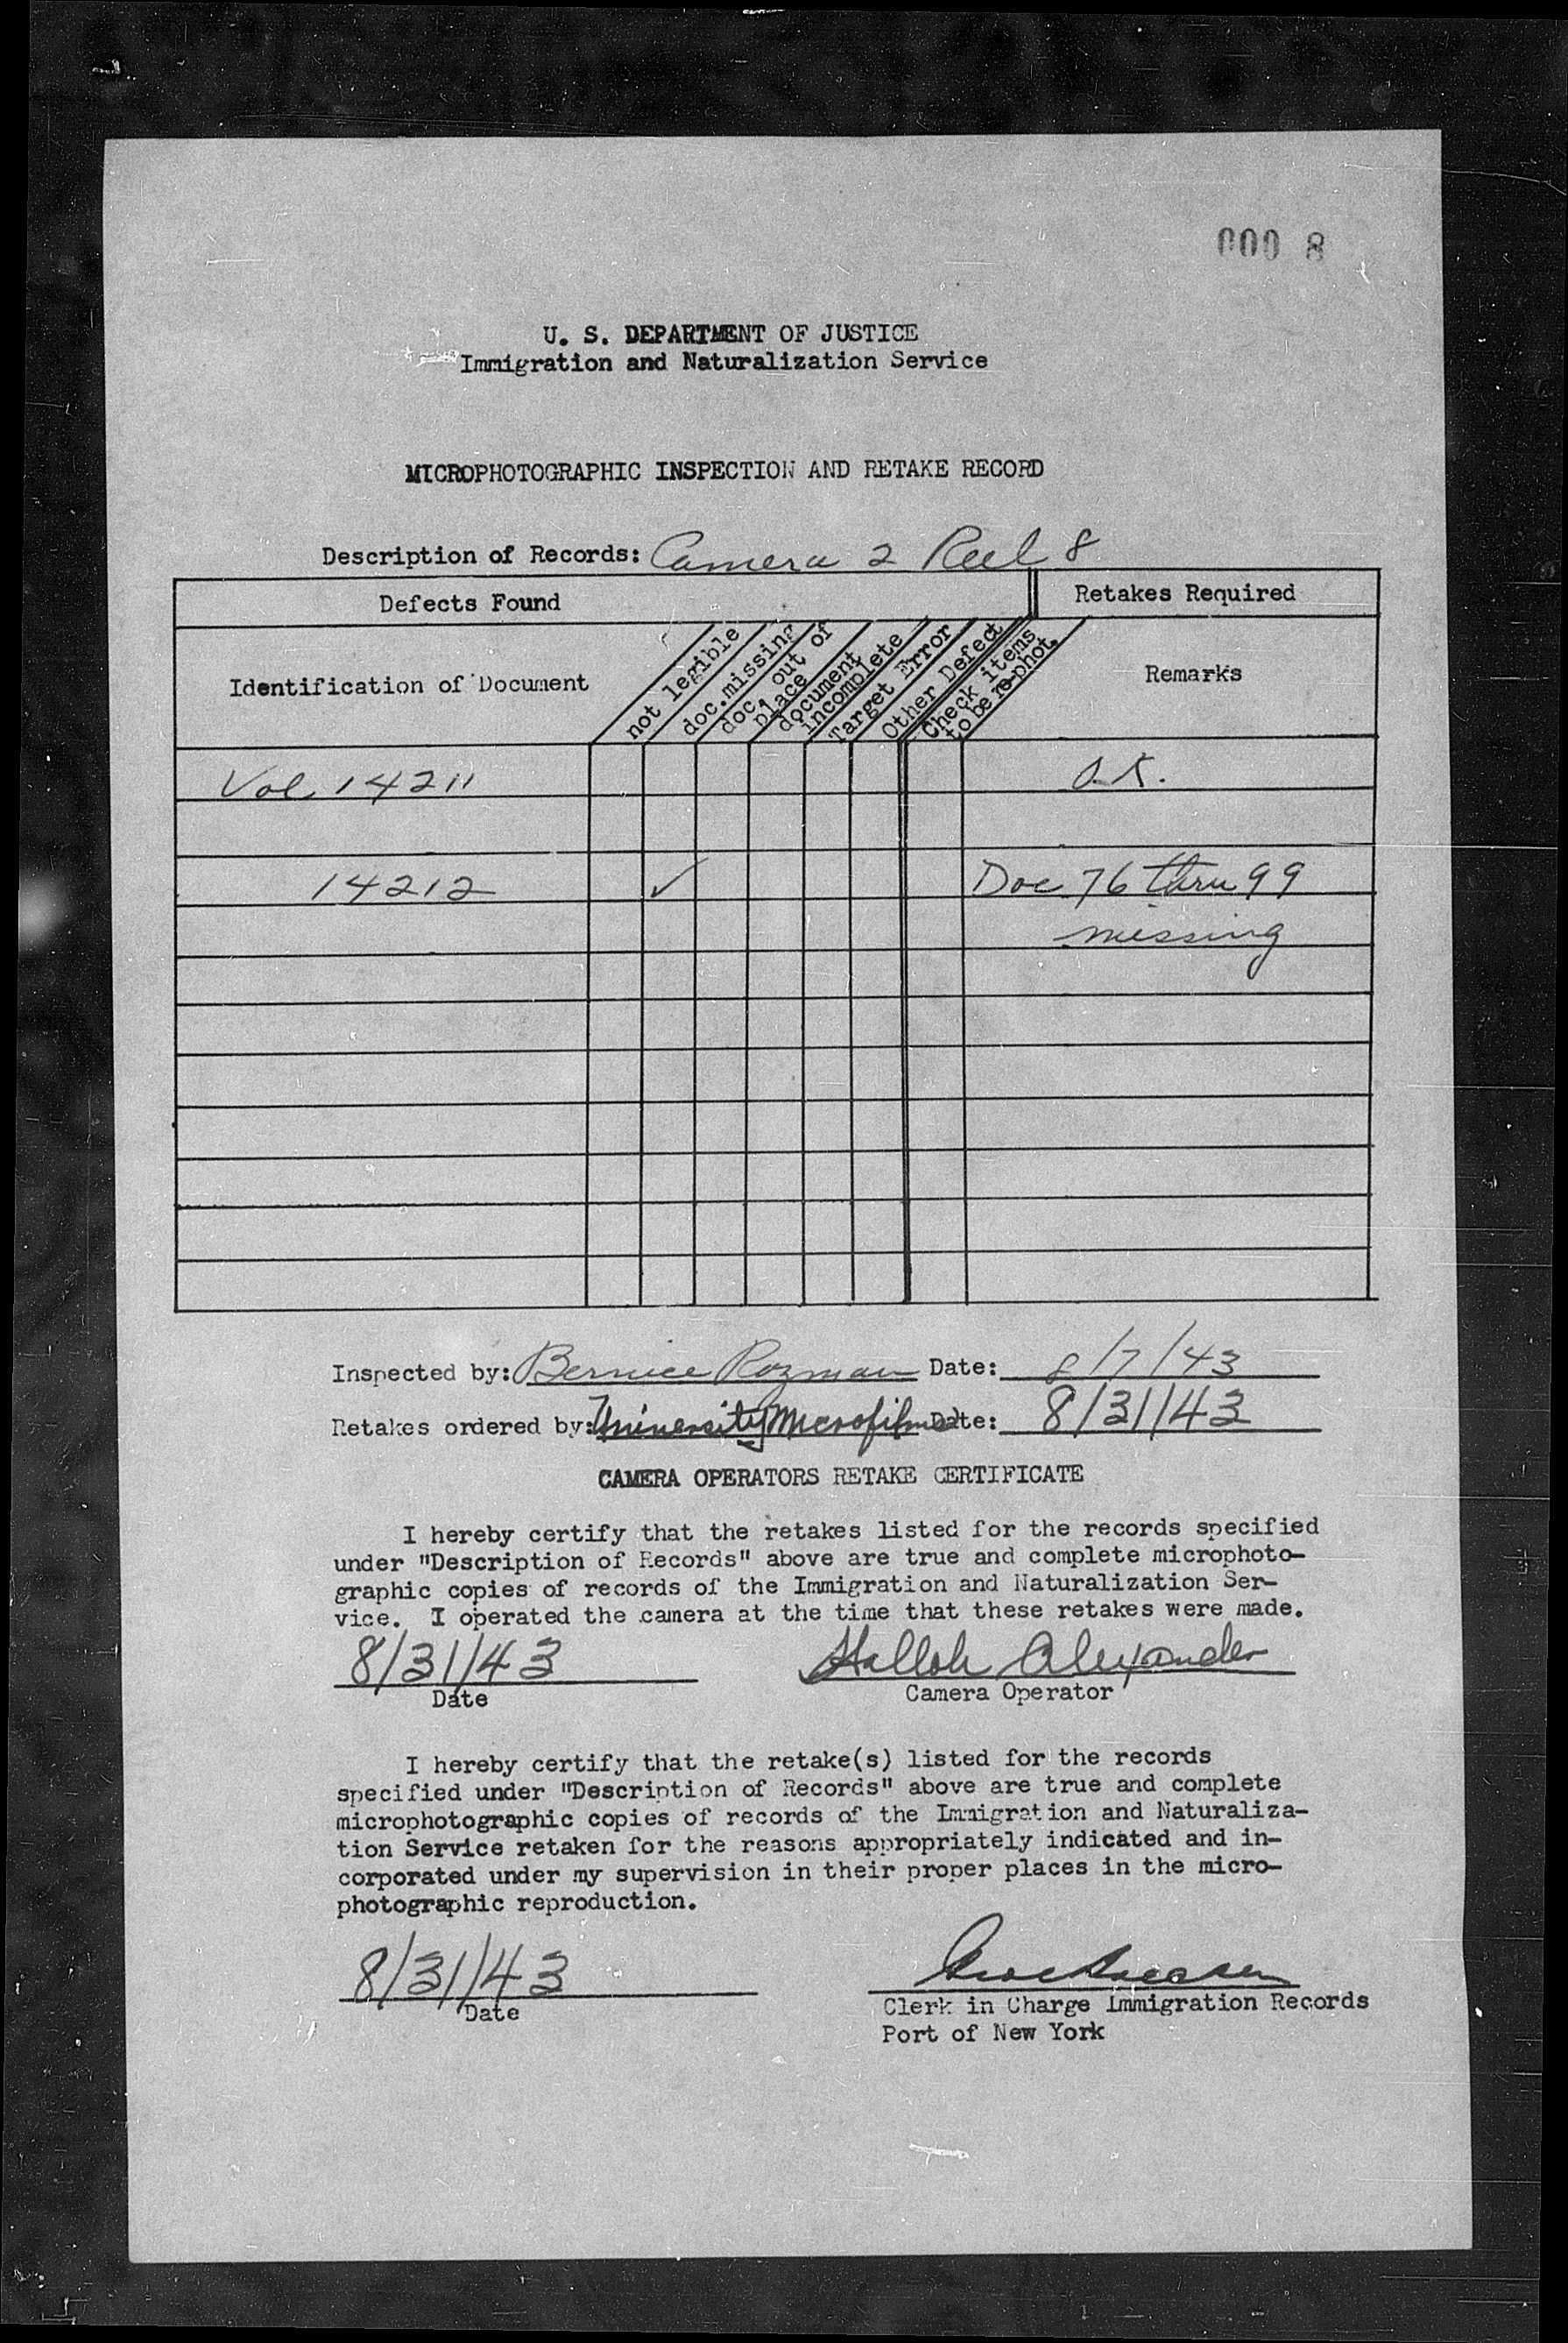 000 8
U. S. DEPARTMENT OF JUSTICE
Immigration and Naturalization Service
MICROPHOTOGRAPHIC INSPECTION AND RETAKE RECORD
Description of Records: Camera 2 Reel 8
Defects Found
Retakes Required
Identification of Document
not legible
doc.missing
doc. out of
place
document
incomplete
Target Error
Other Defect
Check items
to be re-phot.
Remarks
Vol 14211 O.K.
14212 ✓ Doc 76 thru 99
missing
Inspected by: Bernice Rozman Date: 8/7/43
Retakes ordered by: University Microfilms Date: 8/31/43
CAMERA OPERATORS RETAKE CERTIFICATE
I hereby certify that the retakes listed for the records specified
under "Description of Records" above are true and complete microphoto-
graphic copies of records of the Immigration and Naturalization Ser-
vice. I operated the camera at the time that these retakes were made.
8/31/43 Alexander
Date Camera Operator
I hereby certify that the retake(s) listed for the records
specified under "Description of Records" above are true and complete
microphotographic copies of records of the Immigration and Naturaliza-
tion Service retaken for the reasons appropriately indicated and in-
corporated under my supervision in their proper places in the micro-
photographic reproduction.
8/31/43
Date
Clerk in Charge Immigration Records
Port of New York